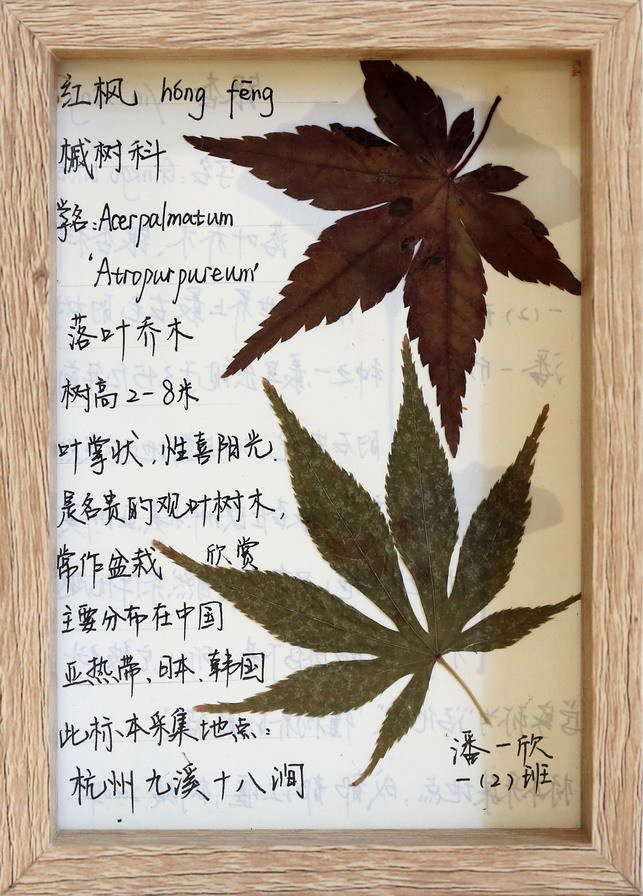 红枫 hóng fēng
槭树科
学名:Acerpalmatum
'Atropurpureum'
落叶乔木
树高2-8米
叶掌状,性喜阳光.
是名贵的观叶树木,
常作盆栽 欣赏
主要分布在中国
亚热带、日本、韩国
此标本采集地点:
杭州九溪十八涧
潘一欣
一(2)班